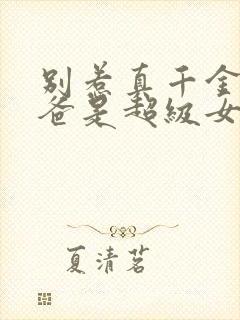 别惹真千金
爸是超级女
夏清茗